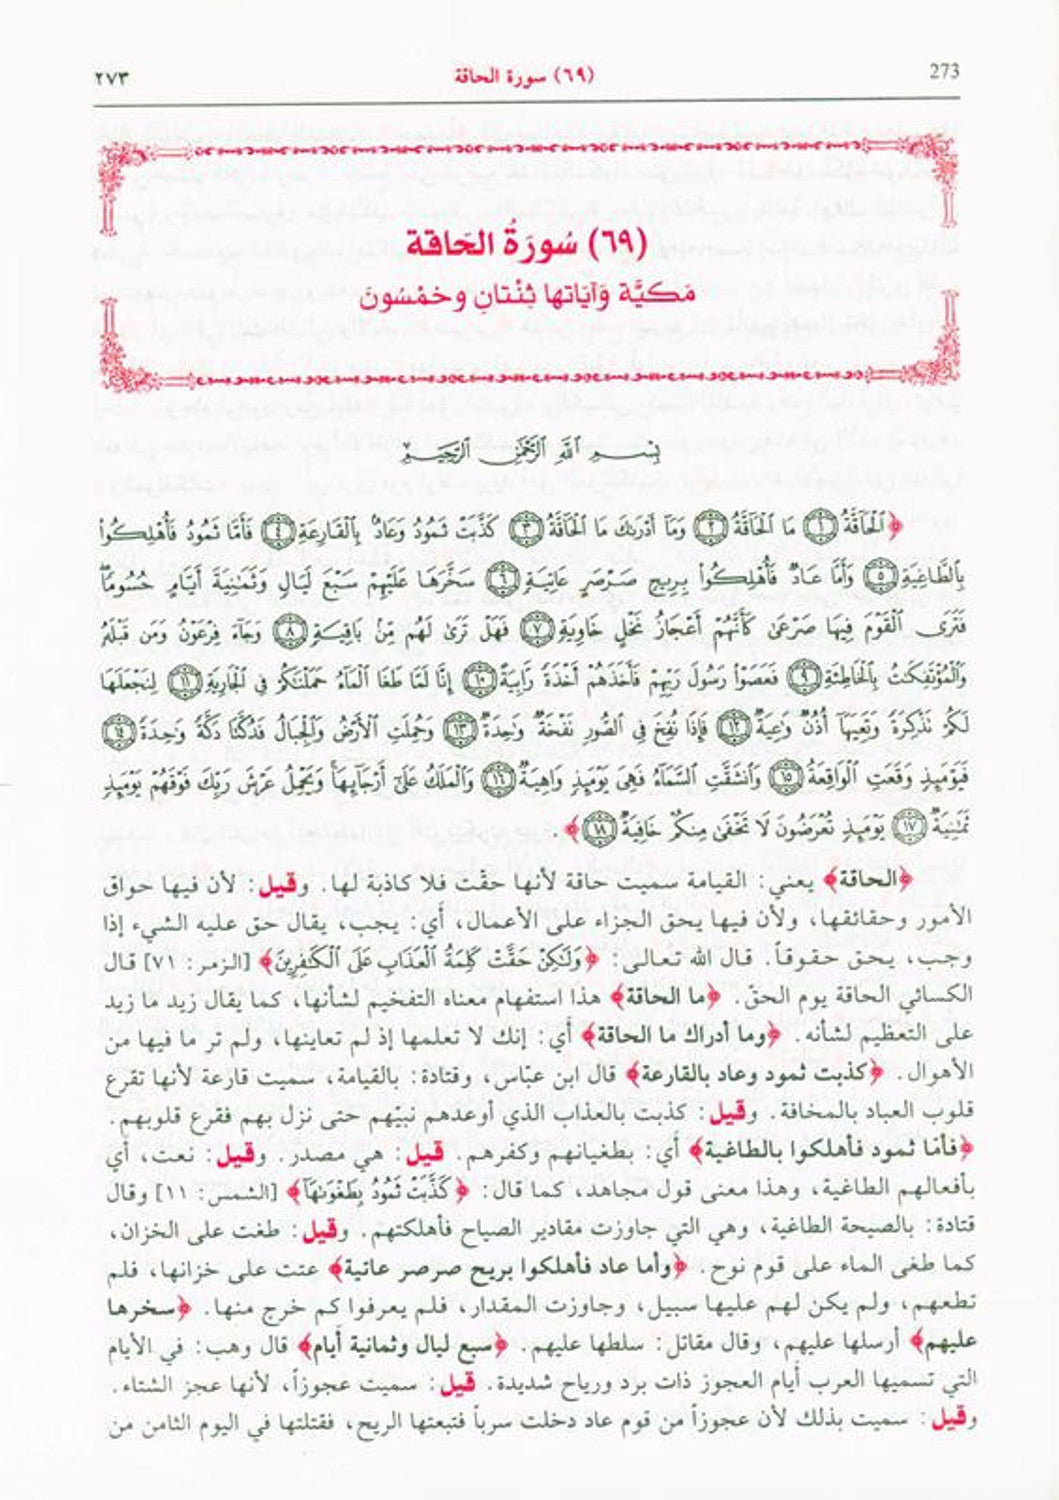 273
(٦٩) سورة الحاقة
٢٧٣
(٦٩) سُورَةُ الحَاقة
مَكيَّة وَآيَاتها ثِنْتانِ وخمْسُونَ
بِسْمِ اللَّهِ الرَّحْمَٰنِ الرَّحِيمِ
﴿ٱلْحَاقَّةُ ١ مَا ٱلْحَاقَّةُ ٢ وَمَآ أَدْرَىٰكَ مَا ٱلْحَاقَّةُ ٣ كَذَّبَتْ ثَمُودُ وَعَادٌۢ بِٱلْقَارِعَةِ ٤ فَأَمَّا ثَمُودُ فَأُهْلِكُواْ
بِٱلطَّاغِيَةِ ٥ وَأَمَّا عَادٌ فَأُهْلِكُواْ بِرِيحٍ صَرْصَرٍ عَاتِيَةٍ ٦ سَخَّرَهَا عَلَيْهِمْ سَبْعَ لَيَالٍ وَثَمَٰنِيَةَ أَيَّامٍ حُسُومًا
فَتَرَى ٱلْقَوْمَ فِيهَا صَرْعَىٰ كَأَنَّهُمْ أَعْجَازُ نَخْلٍ خَاوِيَةٍ ٧ فَهَلْ تَرَىٰ لَهُم مِّنۢ بَاقِيَةٍ ٨ وَجَآءَ فِرْعَوْنُ وَمَن قَبْلَهُۥ
وَٱلْمُؤْتَفِكَٰتُ بِٱلْخَاطِئَةِ ٩ فَعَصَوْاْ رَسُولَ رَبِّهِمْ فَأَخَذَهُمْ أَخْذَةً رَّابِيَةً ١٠ إِنَّا لَمَّا طَغَا ٱلْمَآءُ حَمَلْنَٰكُمْ فِى ٱلْجَارِيَةِ ١١ لِنَجْعَلَهَا
لَكُمْ تَذْكِرَةً وَتَعِيَهَآ أُذُنٌ وَٰعِيَةٌ ١٢ فَإِذَا نُفِخَ فِى ٱلصُّورِ نَفْخَةٌ وَٰحِدَةٌ ١٣ وَحُمِلَتِ ٱلْأَرْضُ وَٱلْجِبَالُ فَدُكَّتَا دَكَّةً وَٰحِدَةً ١٤
فَيَوْمَئِذٍ وَقَعَتِ ٱلْوَاقِعَةُ ١٥ وَٱنشَقَّتِ ٱلسَّمَآءُ فَهِىَ يَوْمَئِذٍ وَاهِيَةٌ ١٦ وَٱلْمَلَكُ عَلَىٰٓ أَرْجَآئِهَا وَيَحْمِلُ عَرْشَ رَبِّكَ فَوْقَهُمْ يَوْمَئِذٍ
ثَمَٰنِيَةٌ ١٧ يَوْمَئِذٍ تُعْرَضُونَ لَا تَخْفَىٰ مِنكُمْ خَافِيَةٌ ١٨﴾.
﴿الحاقة﴾ يعني: القيامة سميت حاقة لأنها حقّت فلا كاذبة لها. وقيل: لأن فيها حواق
الأمور وحقائقها، ولأن فيها يحق الجزاء على الأعمال، أي: يجب، يقال حق عليه الشيء إذا
وجب، يحق حقوقاً. قال الله تعالى: ﴿وَلَٰكِنْ حَقَّتْ كَلِمَةُ ٱلْعَذَابِ عَلَى ٱلْكَٰفِرِينَ﴾ [الزمر: ٧١] قال
الكسائي الحاقة يوم الحقّ. ﴿ما الحاقة﴾ هذا استفهام معناه التفخيم لشأنها، كما يقال زيد ما زيد
على التعظيم لشأنه. ﴿وما أدراك ما الحاقة﴾ أي: إنك لا تعلمها إذ لم تعاينها، ولم تر ما فيها من
الأهوال. ﴿كذبت ثمود وعاد بالقارعة﴾ قال ابن عبّاس، وقتادة: بالقيامة، سميت قارعة لأنها تقرع
قلوب العباد بالمخافة. وقيل: كذبت بالعذاب الذي أوعدهم نبيّهم حتى نزل بهم فقرع قلوبهم.
﴿فأمّا ثمود فأهلكوا بالطاغية﴾ أي: بطغيانهم وكفرهم. قيل: هي مصدر. وقيل: نعت، أي
بأفعالهم الطاغية، وهذا معنى قول مجاهد، كما قال: ﴿كَذَّبَتْ ثَمُودُ بِطَغْوَىٰهَآ﴾ [الشمس: ١١] وقال
قتادة: بالصيحة الطاغية، وهي التي جاوزت مقادير الصياح فأهلكتهم. وقيل: طغت على الخزان،
كما طغى الماء على قوم نوح. ﴿وأما عاد فأهلكوا بريح صرصر عاتية﴾ عتت على خزانها، فلم
تطعهم، ولم يكن لهم عليها سبيل، وجاوزت المقدار، فلم يعرفوا كم خرج منها. ﴿سخرها
عليهم﴾ أرسلها عليهم، وقال مقاتل: سلطها عليهم. ﴿سبع ليال وثمانية أيام﴾ قال وهب: في الأيام
التي تسميها العرب أيام العجوز ذات برد ورياح شديدة. قيل: سميت عجوزاً، لأنها عجز الشتاء.
وقيل: سميت بذلك لأن عجوزاً من قوم عاد دخلت سرباً فتبعتها الريح، فقتلتها في اليوم الثامن من